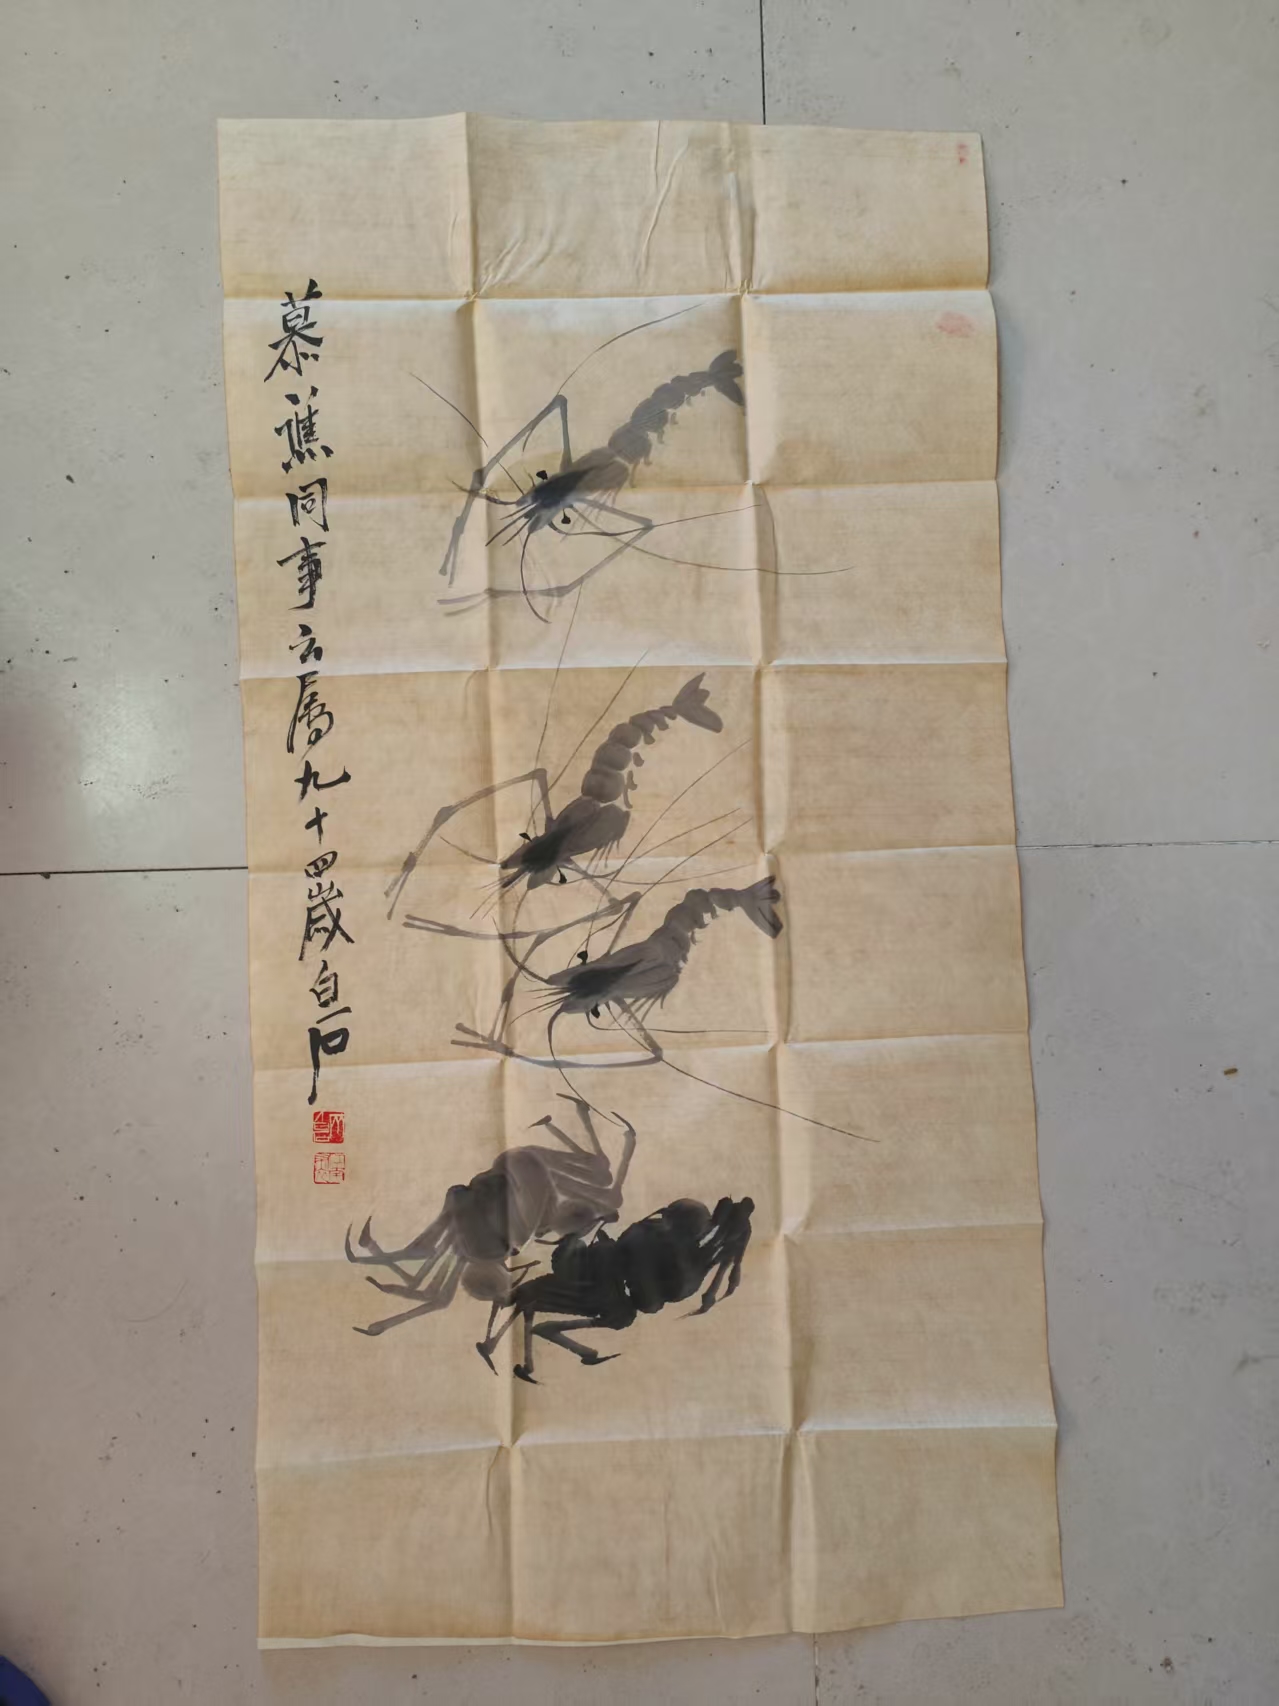 慕谯同事云属九十四岁白石